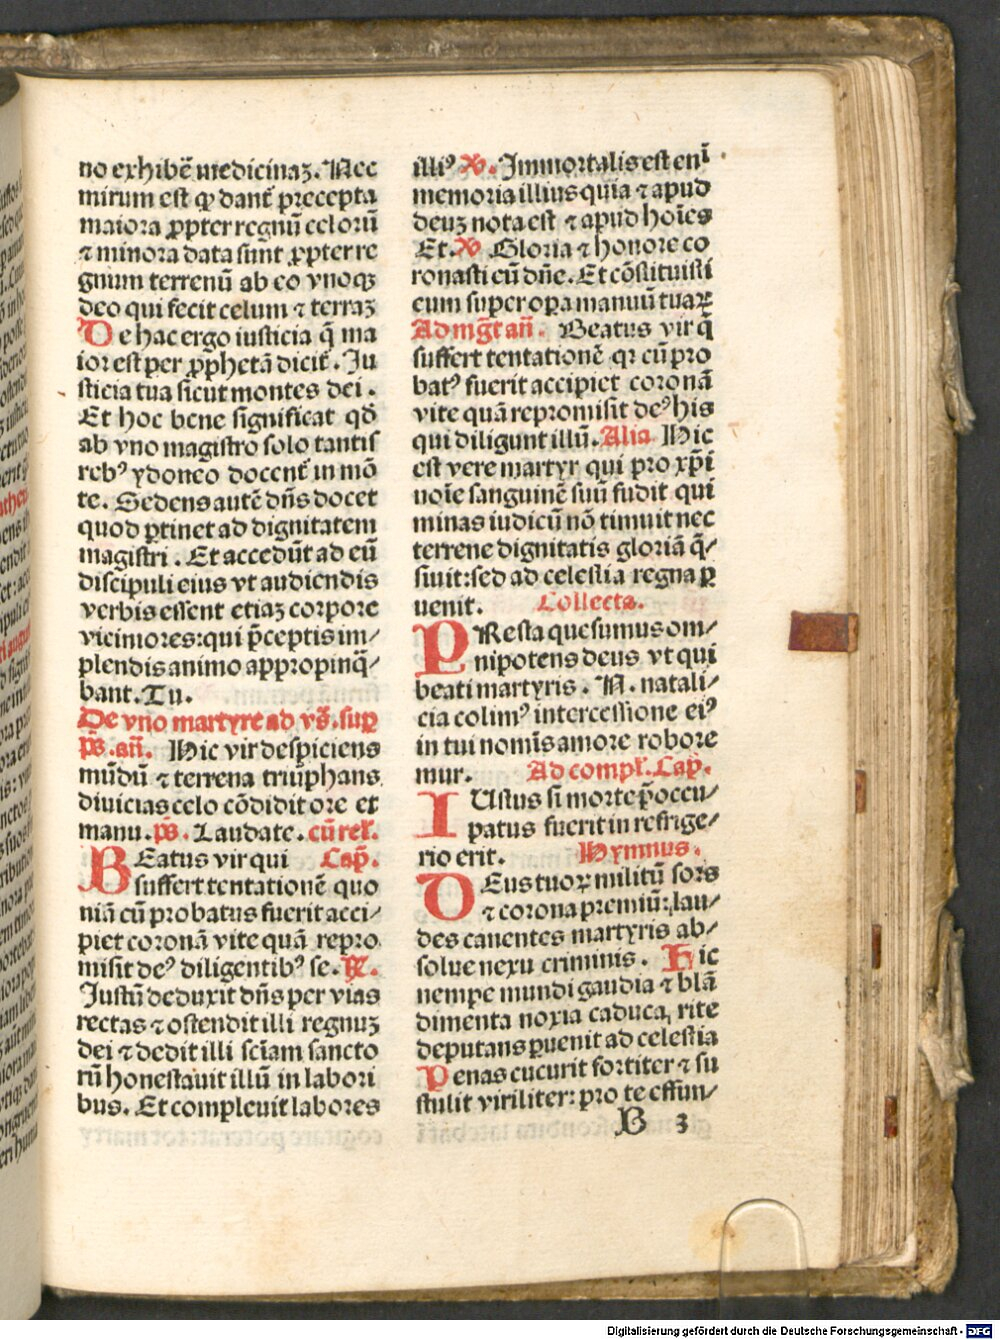 no exhibẽ medicinaꝫ. Nec
mirum est ꝙ dant᷑ precepta
maiora ꝓpter regnũ celorũ
⁊ minora data sunt ꝓpter re
gnum terrenũ ab eo vnoqꝫ
deo qui fecit celum ⁊ terraꝫ
De hac ergo iusticia q̃ ma
ior est per ꝓphetã dicit᷑. Ju
sticia tua sicut montes dei.
Et hoc bene significat qđ
ab vno magistro solo tantis
rebꝰ ydoneo docent᷑ in mõ
te. Sedens autẽ dñs docet
quod ꝑtinet ad dignitatem
magistri. Et accedũt ad eũ
discipuli eius vt audiendis
verbis essent etiaꝫ corpore
viciniores: qui p̃ceptis im/
plendis animo appropinq̃/
bant. Tu.
De vno martyre ad vš. sup
pš. añ. Hic vir despiciens
mũdũ ⁊ terrena triũphans
diuicias celo cõdidit ore et
manu. pš. Laudate. cũ rel̃.
Beatus vir qui Cap̃.
suffert tentationẽ quo
niã cũ probatus fuerit acci/
piet coronã vite quã repro
misit deꝰ diligentibꝰ se. ℟.
Justũ deduxit dñs per vias
rectas ⁊ ostendit illi regnuꝫ
dei ⁊ dedit illi sciam sancto
rũ honestauit illũ in labori
bus. Et compleuit labores
illiꝰ ℣. Immortalis est eni᷑
memoria illius quia ⁊ apud
deuꝫ nota est ⁊ apud hoı̃es
Et. ℣ Gloria ⁊ honore co
ronasti eũ dñe. Et cõstituisti
eum super opa manuũ tuaꝝ
Ad mg̃t añ. Beatus vir q̃
suffert tentationẽ qꝛ cũ pro
batꝰ fuerit accipiet coronã
vite quã repromisit deꝰ his
qui diligunt illũ. Alia Hic
est vere martyr qui pro xp̃i
noı̃e sanguinẽ suũ fudit qui
minas iudicũ nõ timuit nec
terrene dignitatis gloriã q̃/
siuit: sed ad celestia regna ꝑ
uenit. Collecta.
PResta quesumus om/
nipotens deus vt qui
beati martyris. N. natali/
cia colimꝰ intercessione eiꝰ
in tui nomı̃s amore robore
mur. Ad compl̃. Cap̃.
IUstus si morte p̃occu/
patus fuerit in refrige/
rio erit. Hymnus.
DEus tuoꝝ militũ sors
⁊ corona premiũ: lau/
des canentes martyris ab/
solue nexu criminis. Hic
nempe mundi gaudia ⁊ blã
dimenta noxia caduca, rite
deputans ꝑuenit ad celestia
Penas cucurit fortiter ⁊ su
stulit viriliter: pro te effun/
B 3
Digitalisierung gefördert durch die Deutsche Forschungsgemeinschaft - DFG